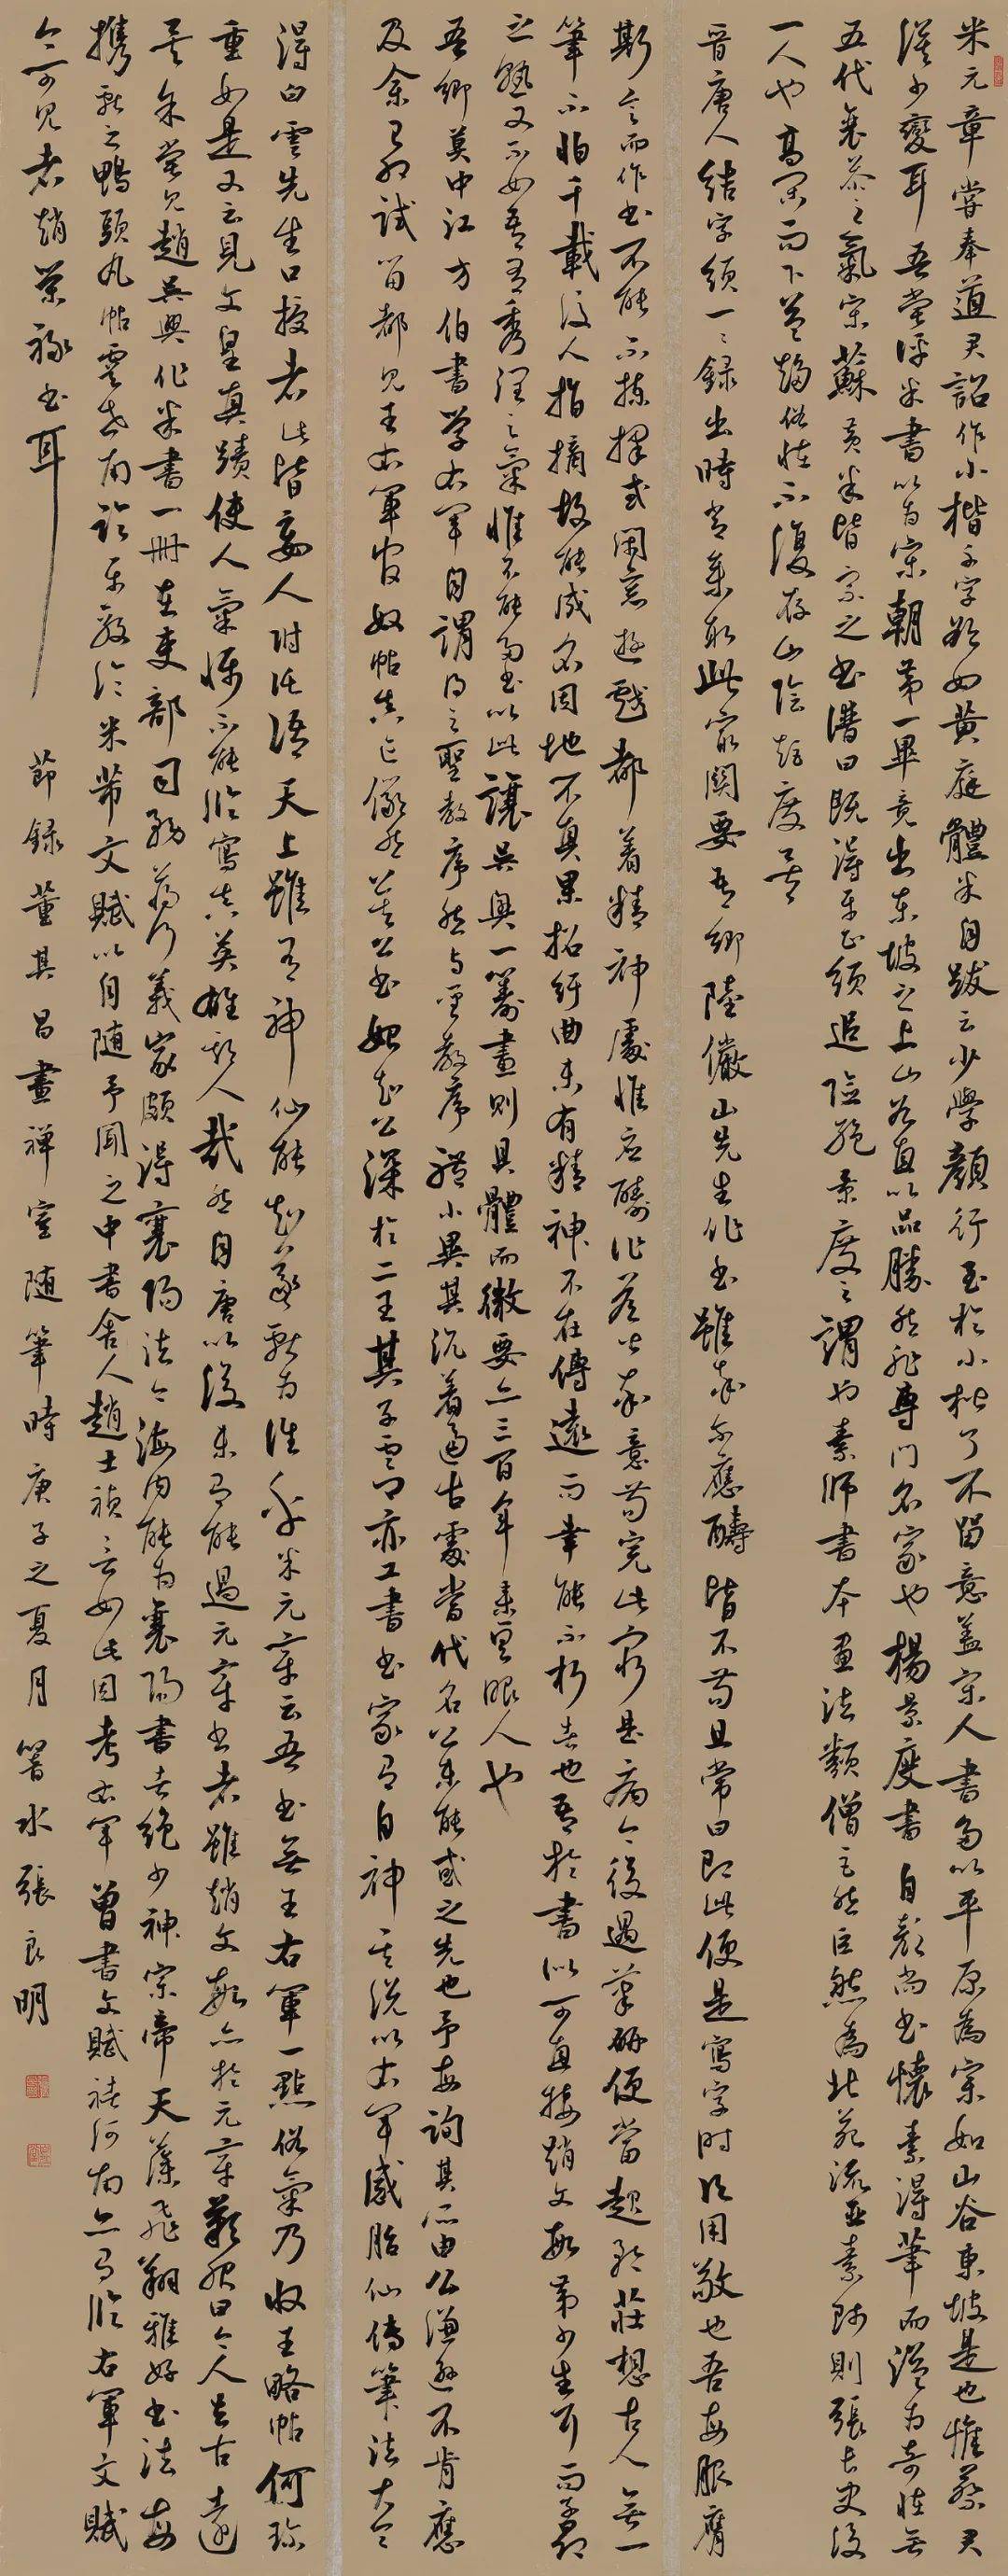 米元章嘗奉道君詔作小楷千字欲如黃庭體米自跋云少學顏行至於小楷了不留意蓋宋人書多以平原為宗如山谷東坡是也惟蔡君
謨少變耳吾嘗評米書以為宋朝第一畢竟出東坡之上山谷直以品勝然非專門名家也楊景度書自顏尚書懷素得筆而溢為奇怪無
五代衰苶之氣宋蘇黃米皆宗之書譜曰既得平正須追險絕景度之謂也素師書本畫法類僧巨然巨然為北苑流亞素師則張長史後
一人也高閑而下益趨俗怪不復存山陰矩度矣
晉唐人結字須一一錄出時常參取此最關要吾鄉陸儼山先生作書雖率爾應酬皆不苟且常曰即此便是寫字時須用敬也吾每服膺
斯言而作書不能不揀擇或閑窓遊戲都着精神處惟應酬作答皆率意苟完此最是病今後遇筆研便當起矜莊想古人無一
筆不怕千載後人指摘故能成名因地不真果招紆曲未有精神不在傳遠而幸能不朽者也吾於書似可直接趙文敏第少生耳而子昂
之熟又不如吾有秀潤之氣惟不能多書以此讓吳興一籌畫則具體而微要亦三百年來具眼人也
吾鄉莫中江方伯書學右軍自謂得之聖教序然與聖教序體小異其沉着逼古處當代名公未能或之先也予每詢其所由公謙遜不肯應
及余己卯試留都見王右軍官奴帖真跡儼然莫公書始知公深於二王其子雲卿亦工書書家有自神其說以右軍感胎仙傳筆法大令
得白雲先生口授者此皆妄人附託語天上雖有神仙能知羲獻為誰乎米元章云吾書無王右軍一點俗氣乃收王略帖何珍
重如是又云見文皇真蹟使人氣懾不能臨寫真英雄欺人哉然自唐以後未有能過元章書者雖趙文敏亦於元章歎服曰今人去古遠
矣余嘗見趙吳興作米書一冊在吏部司務蔣行義家頗得襄陽法今海內能為襄陽書者絕少神宗帝天藻飛翔雅好書法每
攜獻之鴨頭丸帖虞世南臨樂毅論米芾文賦以自隨予聞之中書舍人趙士禎言如此因考右軍曾書文賦褚河南亦有臨右軍文賦
今可見者趙榮祿書耳
節錄董其昌畫禪室隨筆時庚子之夏月箬水張良明